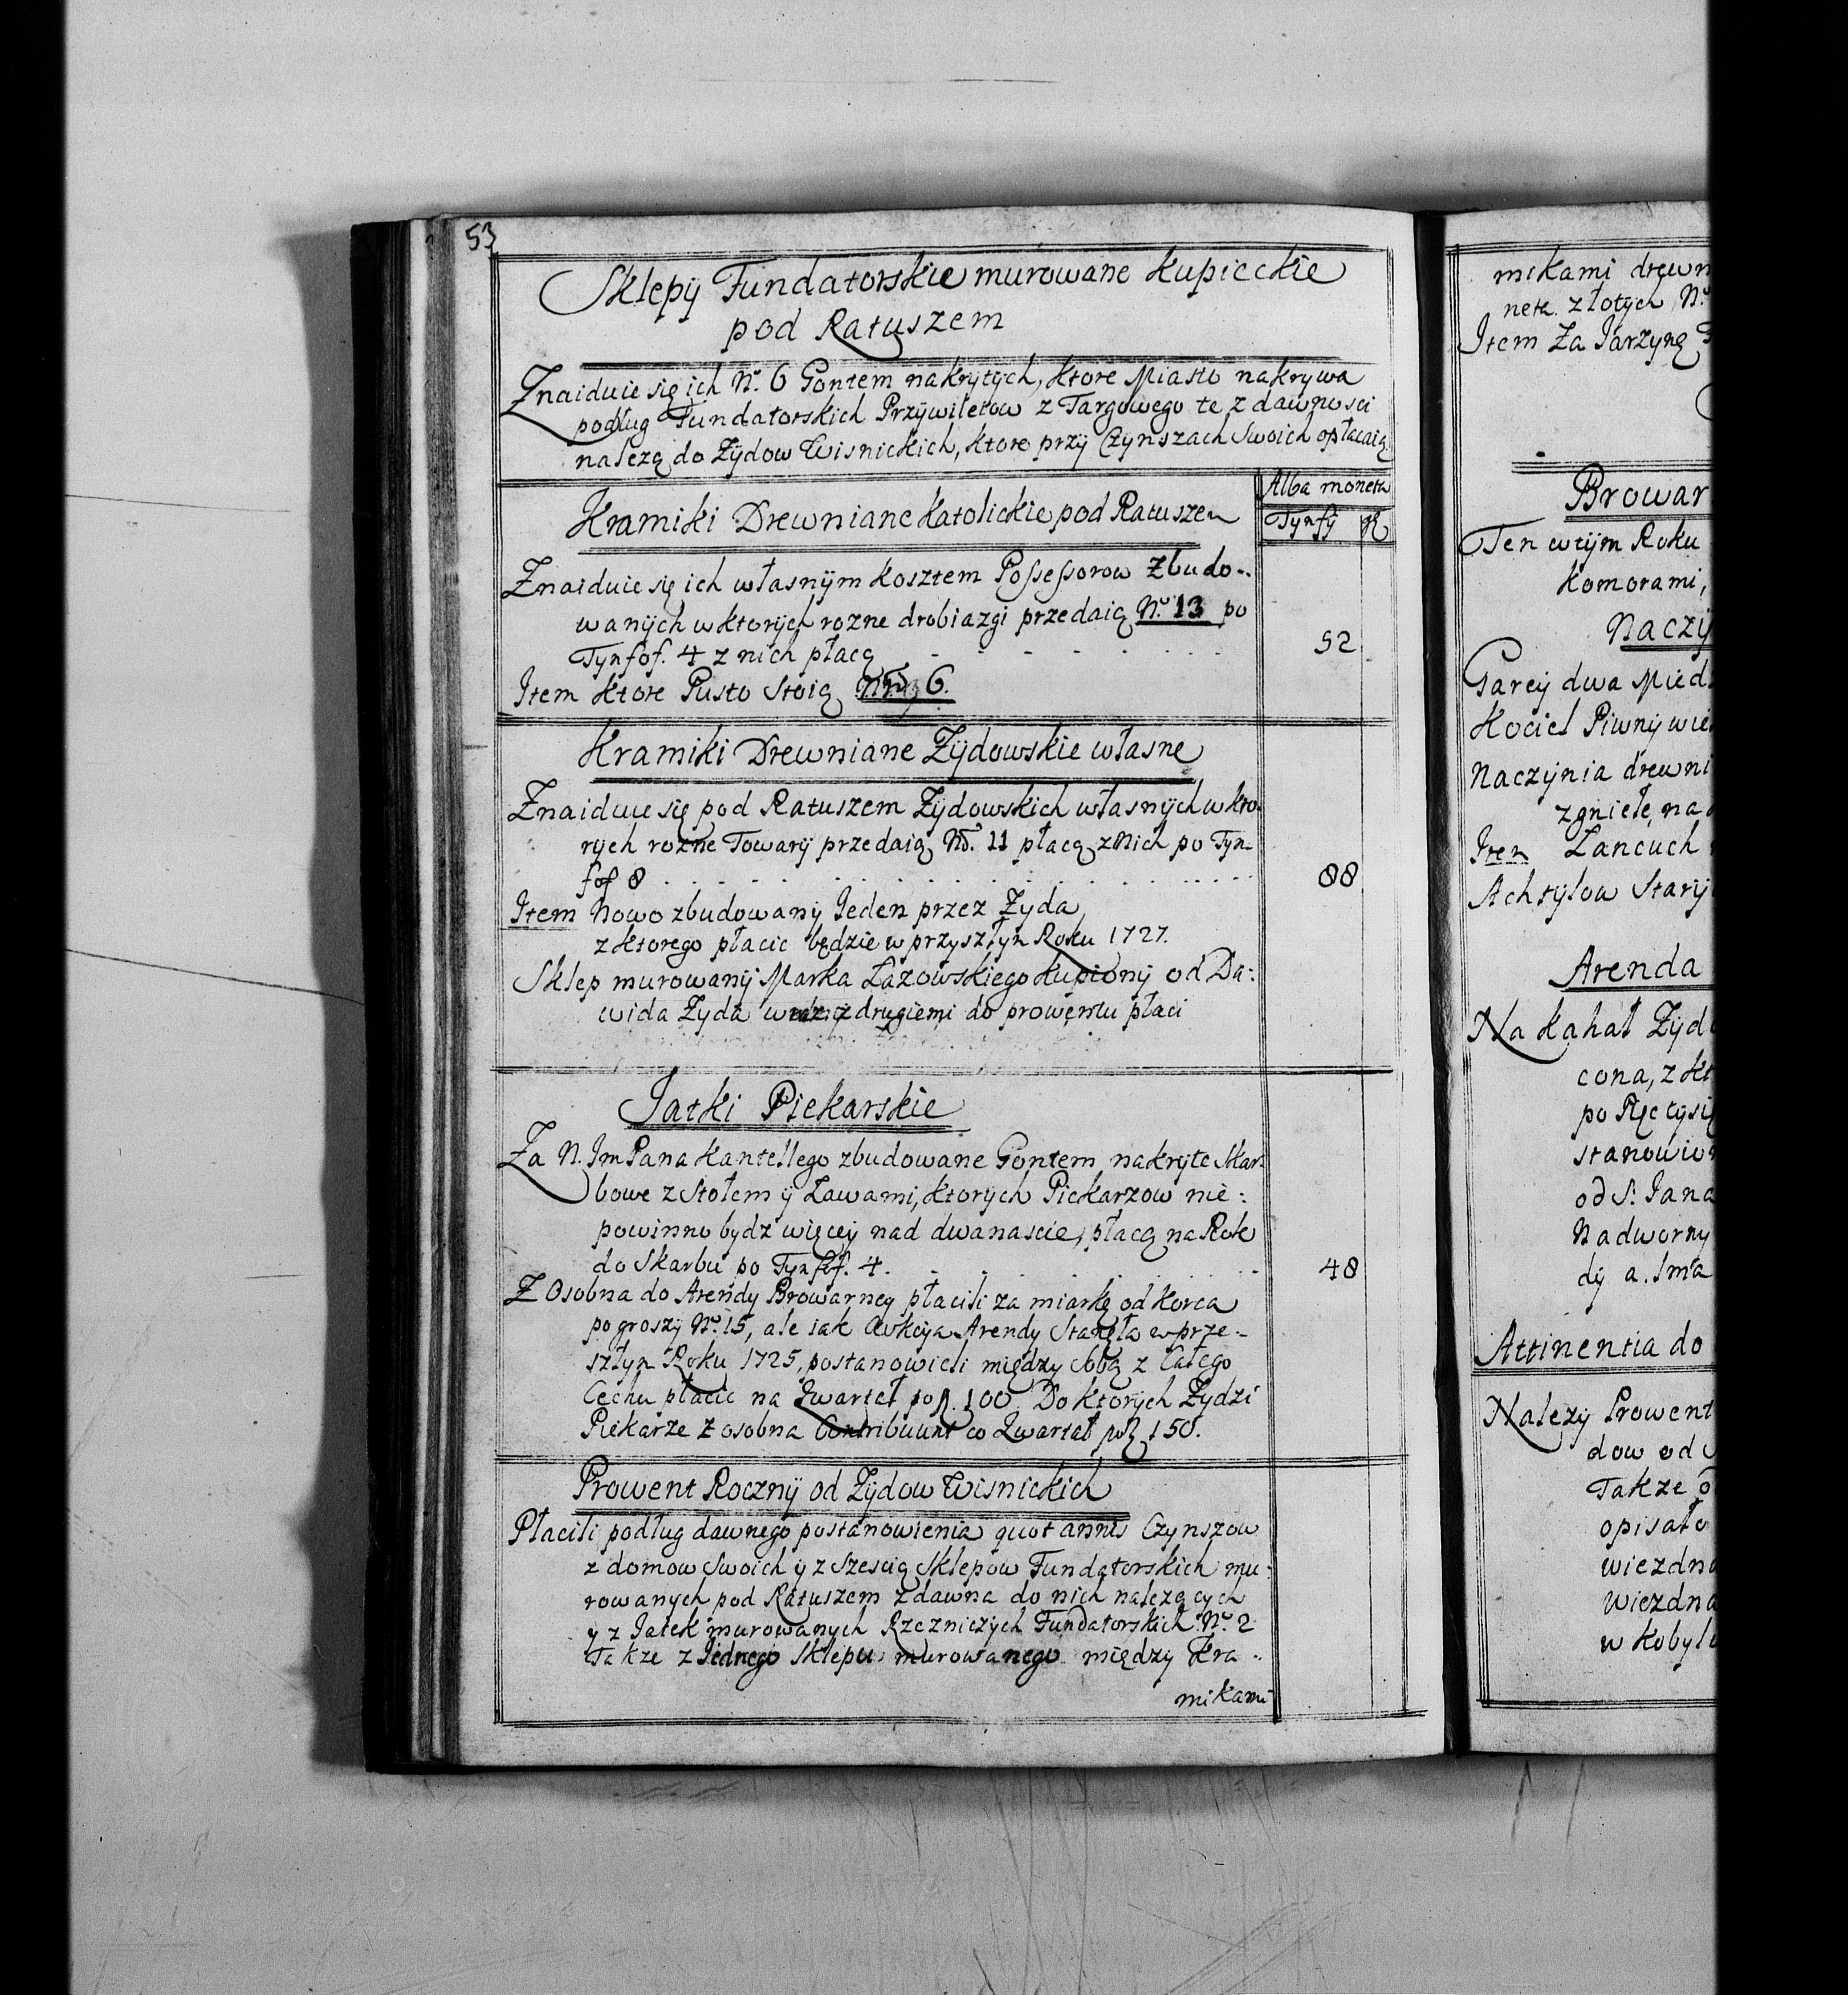 53
Sklepÿ Fundatorskie murowane Kupieckie
pod Ratuszem
Znaiduie się ich Nº. 6 Gontem nakrÿtÿch, ktore Miasto nakrÿwa
podług Fundatorskich Przÿwileiow z Targowego te z dawnosci
należą do Zÿdow Wisnickich, ktore przÿ Czÿnszach Swoich opłacaią
Alba moneta
Kramiki Drewniane Katolickie pod Ratuszem
Tynfÿ
Znaiduie się ich własnÿm kosztem Possessorow zbudo-
wanÿch w ktorÿch rozne drobiazgi przedaią Nº. 13 po
Tynfof. 4 z nich płacą 52
Item ktore Pusto Stoią 6.
Kramiki Drewniane Zÿdowskie własne
Znaiduie się pod Ratuszem Zÿdowskich własnÿch w kto-
rÿch rozne Towarÿ przedaią Nº. 11 płacą z Nich po Tyn-
fof 8 88
Item Nowo zbudowanÿ Jeden przez Zyda,
z ktorego płacic będzie w przyszłym Roku 1727.
Sklep murowanÿ Marka Łazowskiego kupionÿ od Da:
wida Zyda wraz z drugiemi do prowentu płaci
Jatki Piekarskie
Za N. Jm Pana Kantellego zbudowane Gontem nakryte Skar:
bowe z Stołem ÿ Ławami, ktorÿch Piekarzow nie:
powinno bydz więcey nad dwanascie, płacą na Rok
do Skarbu po Tynfof. 4. 48
Z Osobna do Arendy Browarney płacili za miarkę od Korca
po groszÿ Nº. 15, ale iak Aukcÿa Arendy Stanęła w prze-
szłym Roku 1725, postanowili między sobą z Całego
Cechu płacic na Qwartał po 100. Do ktorÿch Zydzi
Piekarze z osobna Contribuunt co Qwartał 150.
Prowent Rocznÿ od Zÿdow Wisnickich
Płacili podług dawnego postanowienia quot annis Czynszow
z domow Swoich y z Szescią Sklepow Fundatorskich mu:
rowanych pod Ratuszem z dawna do nich należących
y z Jatek murowanych Rzeznicżych Fundatorskich Nº. 2
Takze z Jednego Sklepu murowanego między Kra-
mikami
mikami drewn
neta złotych Nº
Item Za Jarzynę
Browar
Ten w tÿm Roku
Komorami,
Naczÿ
Garcÿ dwa Mied
Kocieł Piwnÿ wie
Naczÿnia drewni
zgniełe, na
Item Lancuch
Achtylow Starÿ
Arenda
Na Kahał Zÿd
cona, z kt
po tysi
stanowion
od S. Jana
Nadworny
dÿ a. Ima
Attinentia do
Należy Prowent
dow od
Takze
opisało
wiezdn
wiezdna
w Kobyl